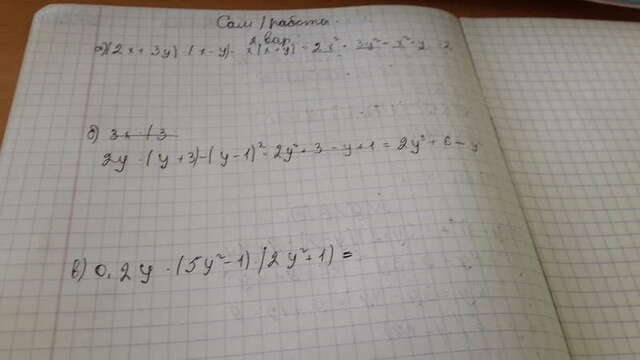 Сам / работы.
2 вар.
а) (2x + 3y) · (x - y) - x(x + y) = 2x² - 3y² - x² - y
б) 3x · (3
2y · (y + 3) - (y - 1)² = 2y² + 3 - y + 1 = 2y² + 6 - y
в) 0,2y · (5y² - 1) (2y² + 1) =